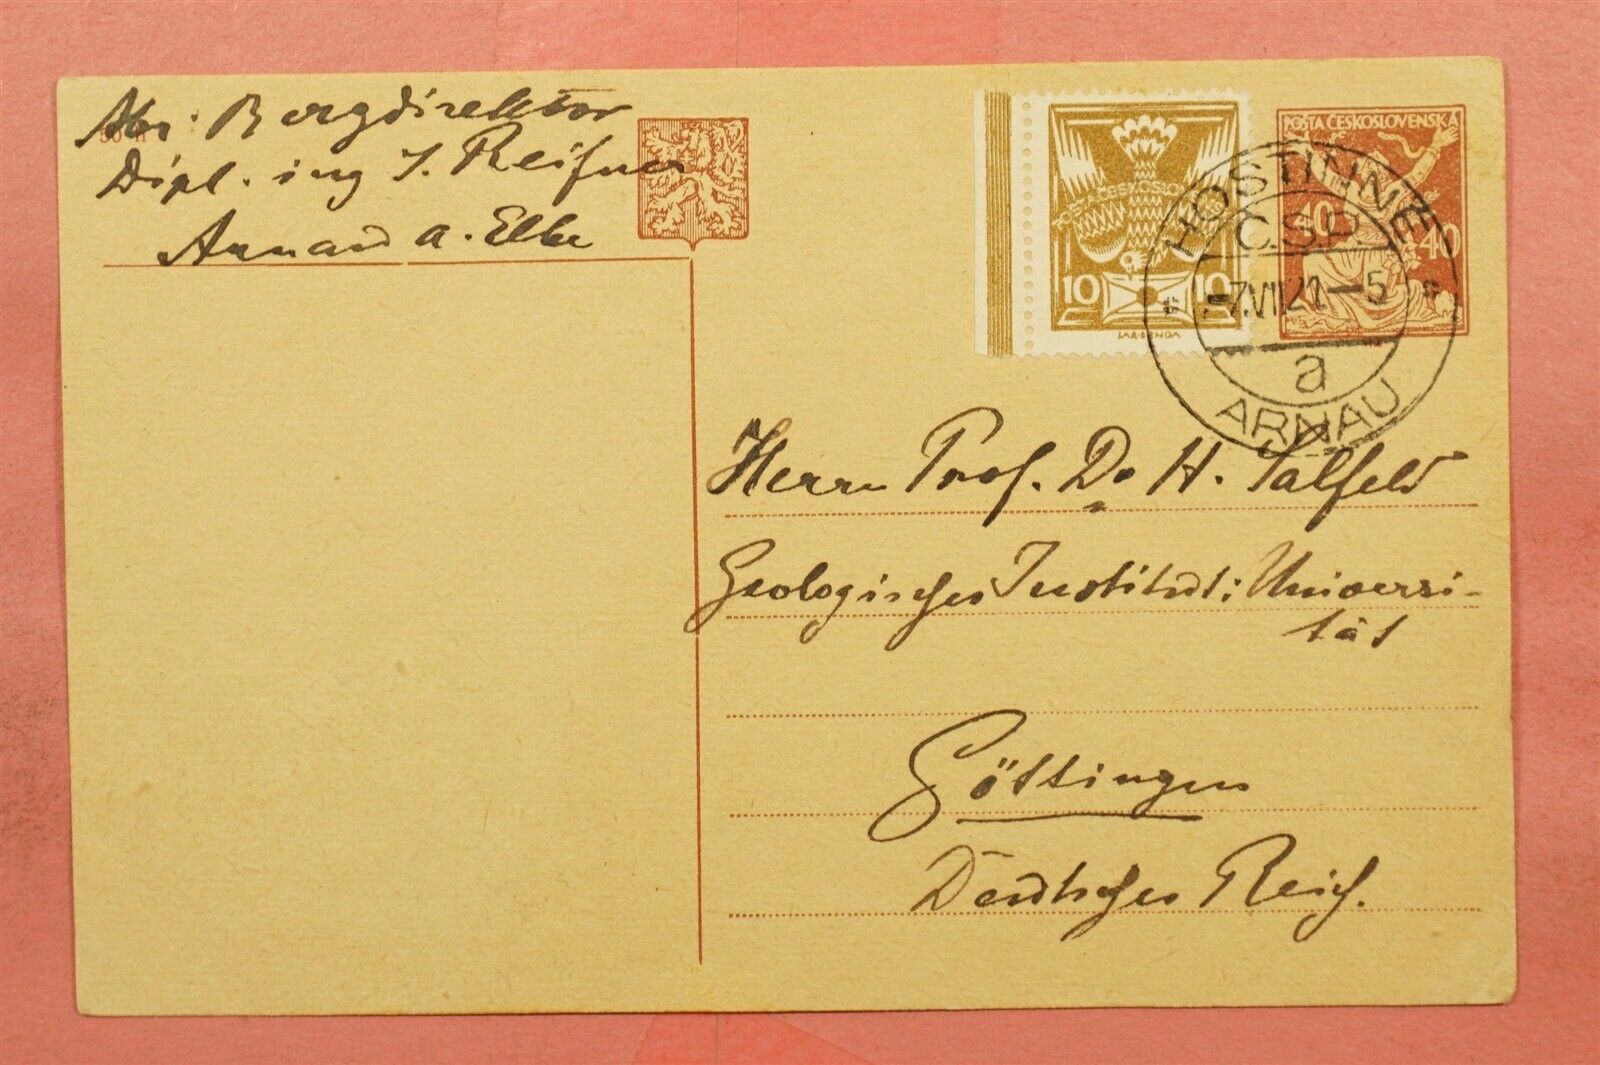 Abs: Bergdirektor
Dipl. ing J. Reifner
Arnau a. Elbe
ČESKOSLO
10 10
POŠTA ČESKOSLOVENSKÁ
40 40
HOSTINNÉ
Č.S.P.
-7.VII.21-5
a
ARNAU
Herrn Prof. Dr H. Salfeld
Geologisches Institut: Universi-
tät
Göttingen
Deutsches Reich.